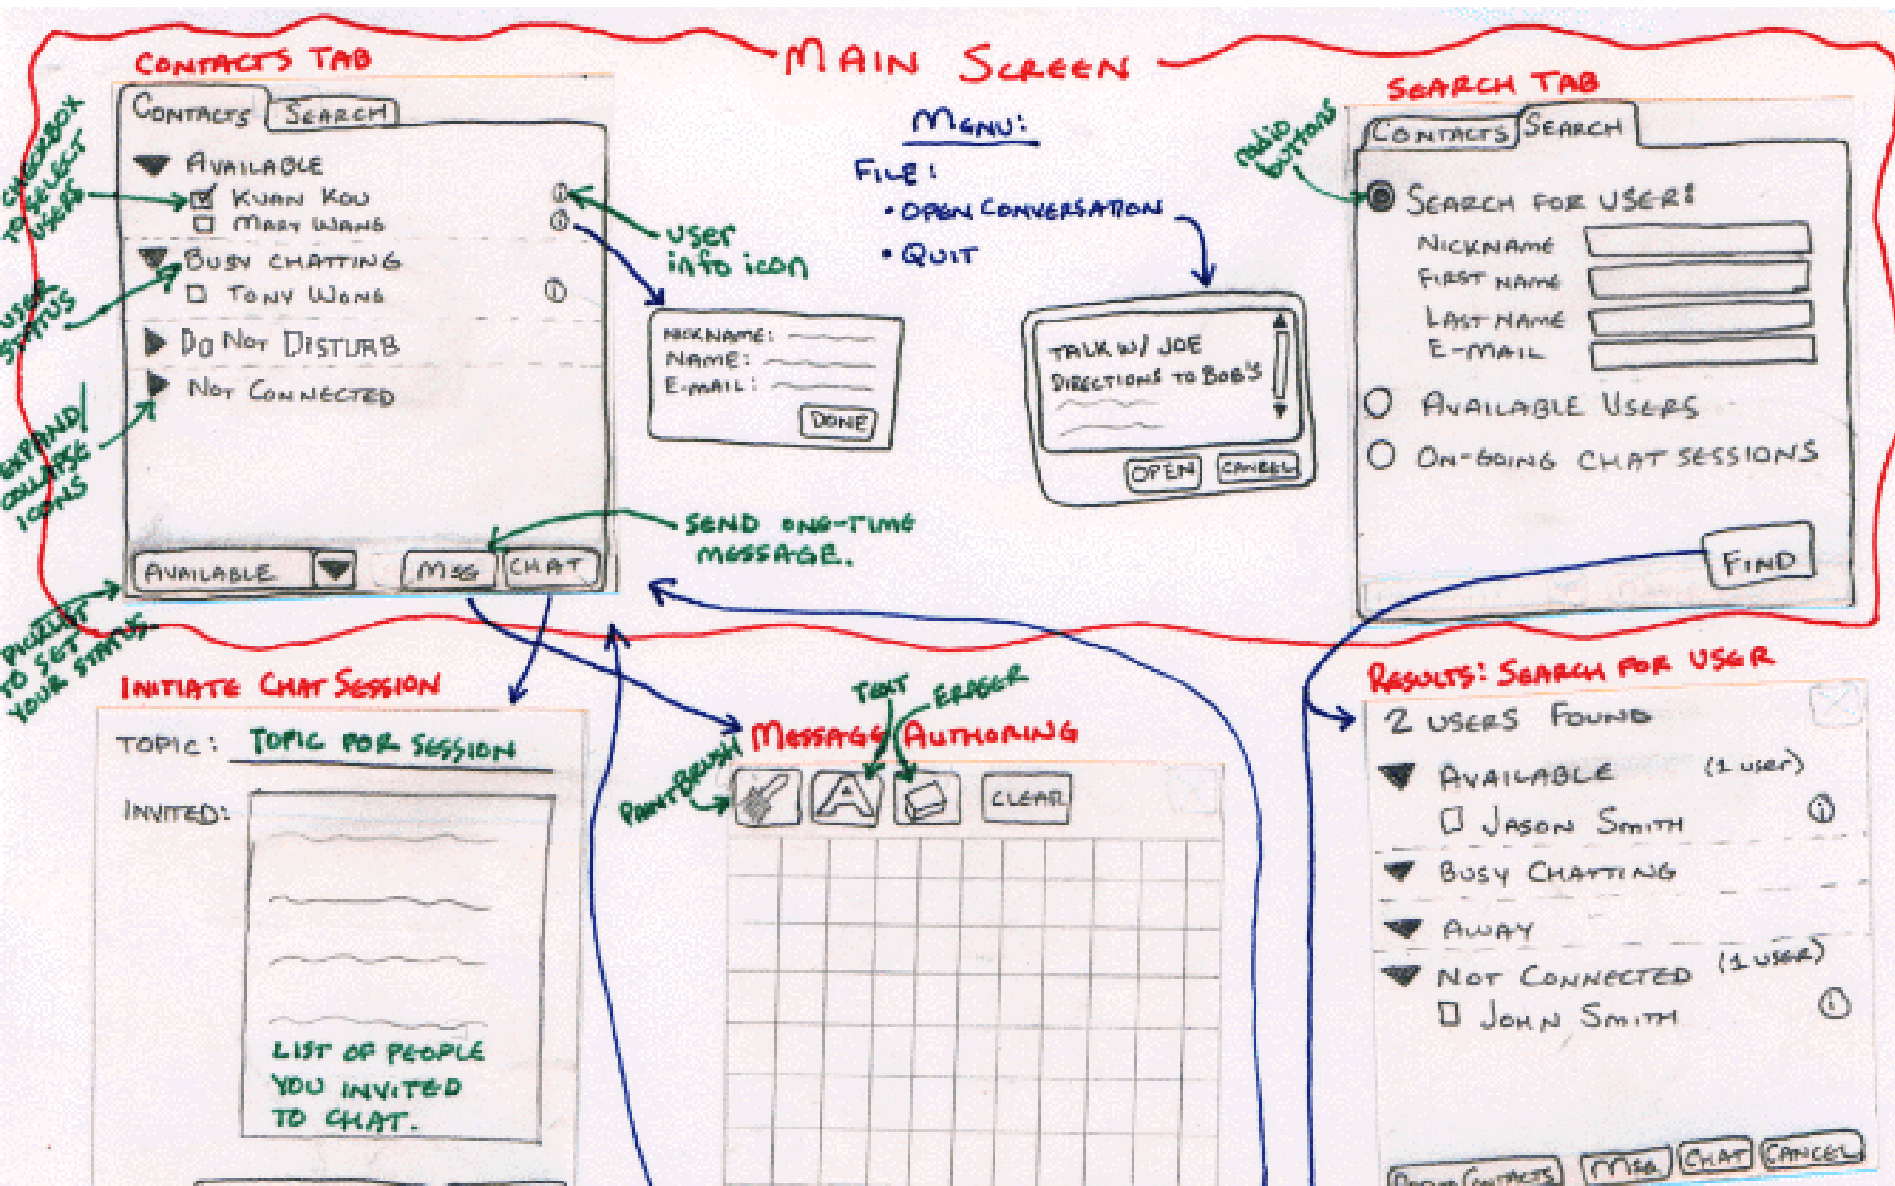 MAIN SCREEN
CONTACTS TAB
CONTACTS SEARCH
CHECKBOX
TO SELECT
USERS
AVAILABLE
KUAN KOU
MARY WANG
BUSY CHATTING
TONY WONG
DO NOT DISTURB
NOT CONNECTED
USER
STATUS
EXPAND/
COLLAPSE
ICONS
AVAILABLE
MSG
CHAT
PICKLIST
TO SET
YOUR STATUS
USER
info icon
NICKNAME:
NAME:
E-MAIL:
DONE
SEND ONE-TIME
MESSAGE.
MENU:
FILE:
• OPEN CONVERSATION
• QUIT
TALK W/ JOE
DIRECTIONS TO BOB'S
OPEN
CANCEL
SEARCH TAB
radio
buttons
CONTACTS SEARCH
SEARCH FOR USER:
NICKNAME
FIRST NAME
LAST NAME
E-MAIL
AVAILABLE USERS
ON-GOING CHAT SESSIONS
FIND
INITIATE CHAT SESSION
TOPIC: TOPIC FOR SESSION
INVITED:
LIST OF PEOPLE
YOU INVITED
TO CHAT.
TEXT
ERASER
MESSAGE AUTHORING
PAINTBRUSH
A
CLEAR
RESULTS: SEARCH FOR USER
2 USERS FOUND
AVAILABLE (1 USER)
JASON SMITH
BUSY CHATTING
AWAY
NOT CONNECTED (1 USER)
JOHN SMITH
CONTACTS
MSG
CHAT
CANCEL